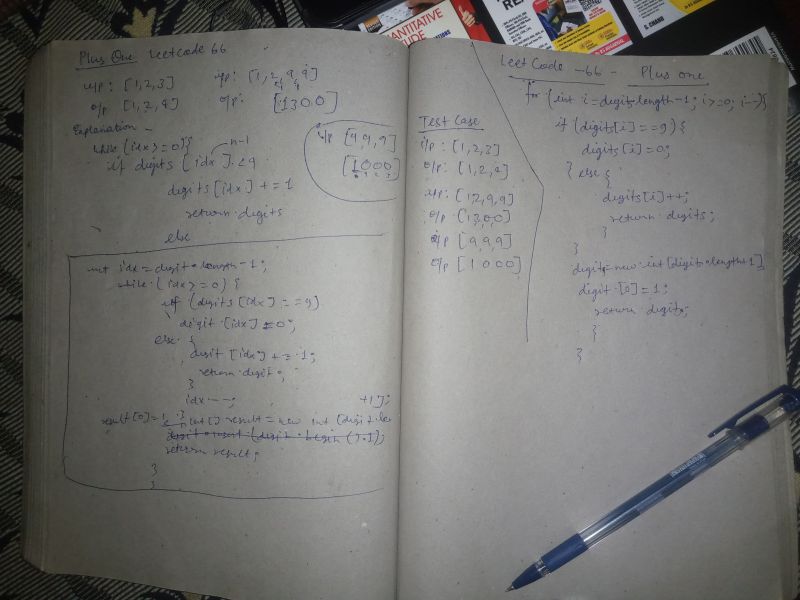 Plus One LeetCode 66
i/p: [1,2,3] i/p: [1,2,9,9]
o/p [1,2,4] o/p: [1300]
Explanation -
while (idx >= 0){
n-1
if digits [idx] < 9
digits [idx] += 1
return digits
else
i/p [9,9,9]
[1000]
int idx = digit.length - 1;
while (idx >= 0) {
if (digits [idx] == 9)
digit [idx] = 0;
else {
digit [idx] += 1;
return digit;
}
idx --;
+1];
result [0] = 1; int [] result = new int [digit.le
return result;
}
}
LeetCode - 66 - Plus one
for (int i = digit.length - 1; i >= 0; i--){
if (digits[i] == 9) {
digits[i] = 0;
} else {
digits[i]++;
return digits;
}
}
digits = new int [digits.length+1]
digit [0] = 1;
return digits;
}
}
Test Case
i/p: [1,2,3]
o/p: [1,2,4]
i/p: [1,2,9,9]
o/p [1,3,0,0]
i/p [9,9,9]
o/p [1000]
QUANTITATIVE
S. CHAND